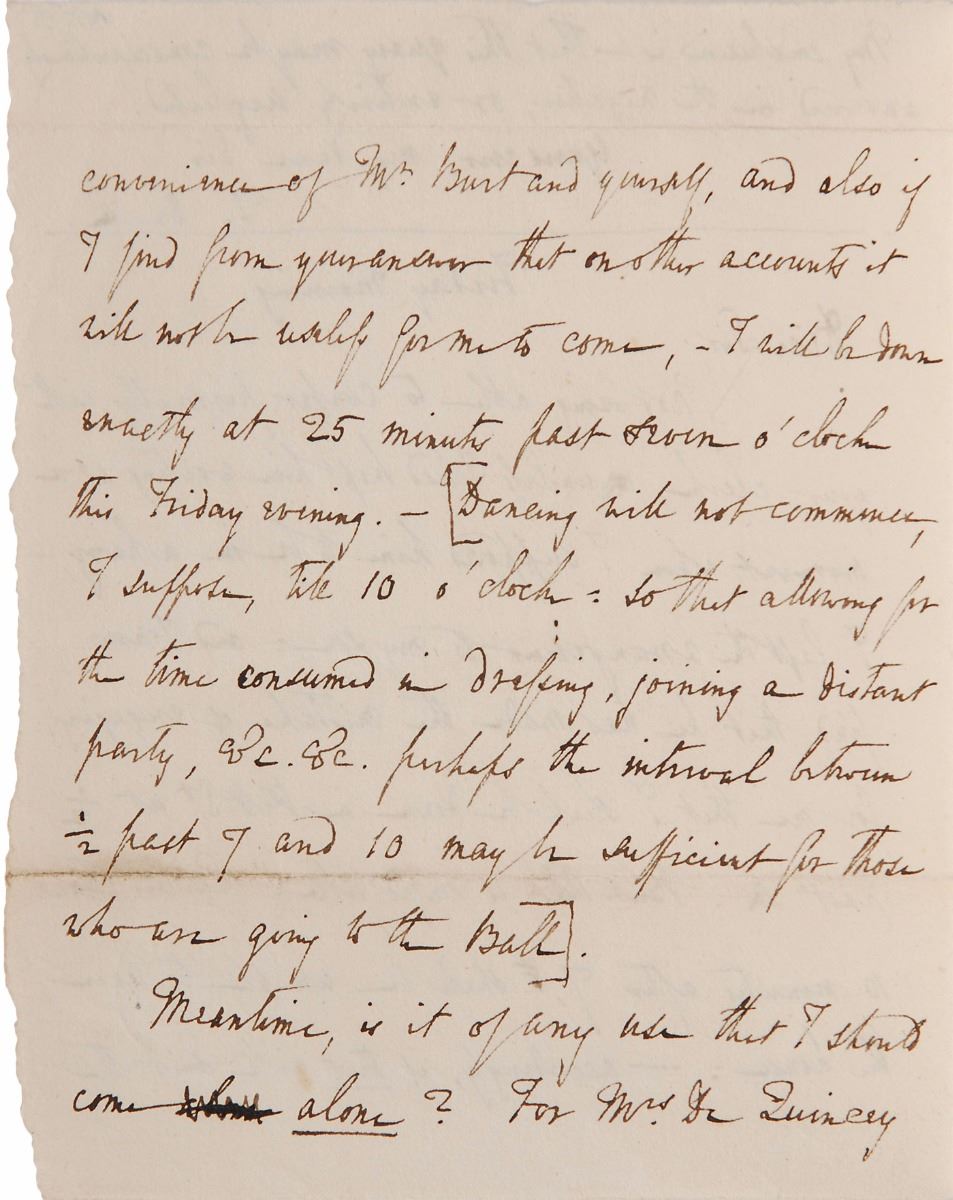 convenience of Mr. Burt and yourself, and also if
I find from your answer that on other accounts it
will not be useless for me to come, – I will be down
exactly at 25 minutes past seven o'clock
this Friday evening. – [Dancing will not commence,
I suppose, till 10 o'clock : so that allowing for
the time consumed in dressing, joining a distant
party, &c. &c. perhaps the interval between
½ past 7 and 10 may be sufficient for those
who are going to the Ball].
Meantime, is it of any use that I should
come alone ? For Mrs. De Quincey